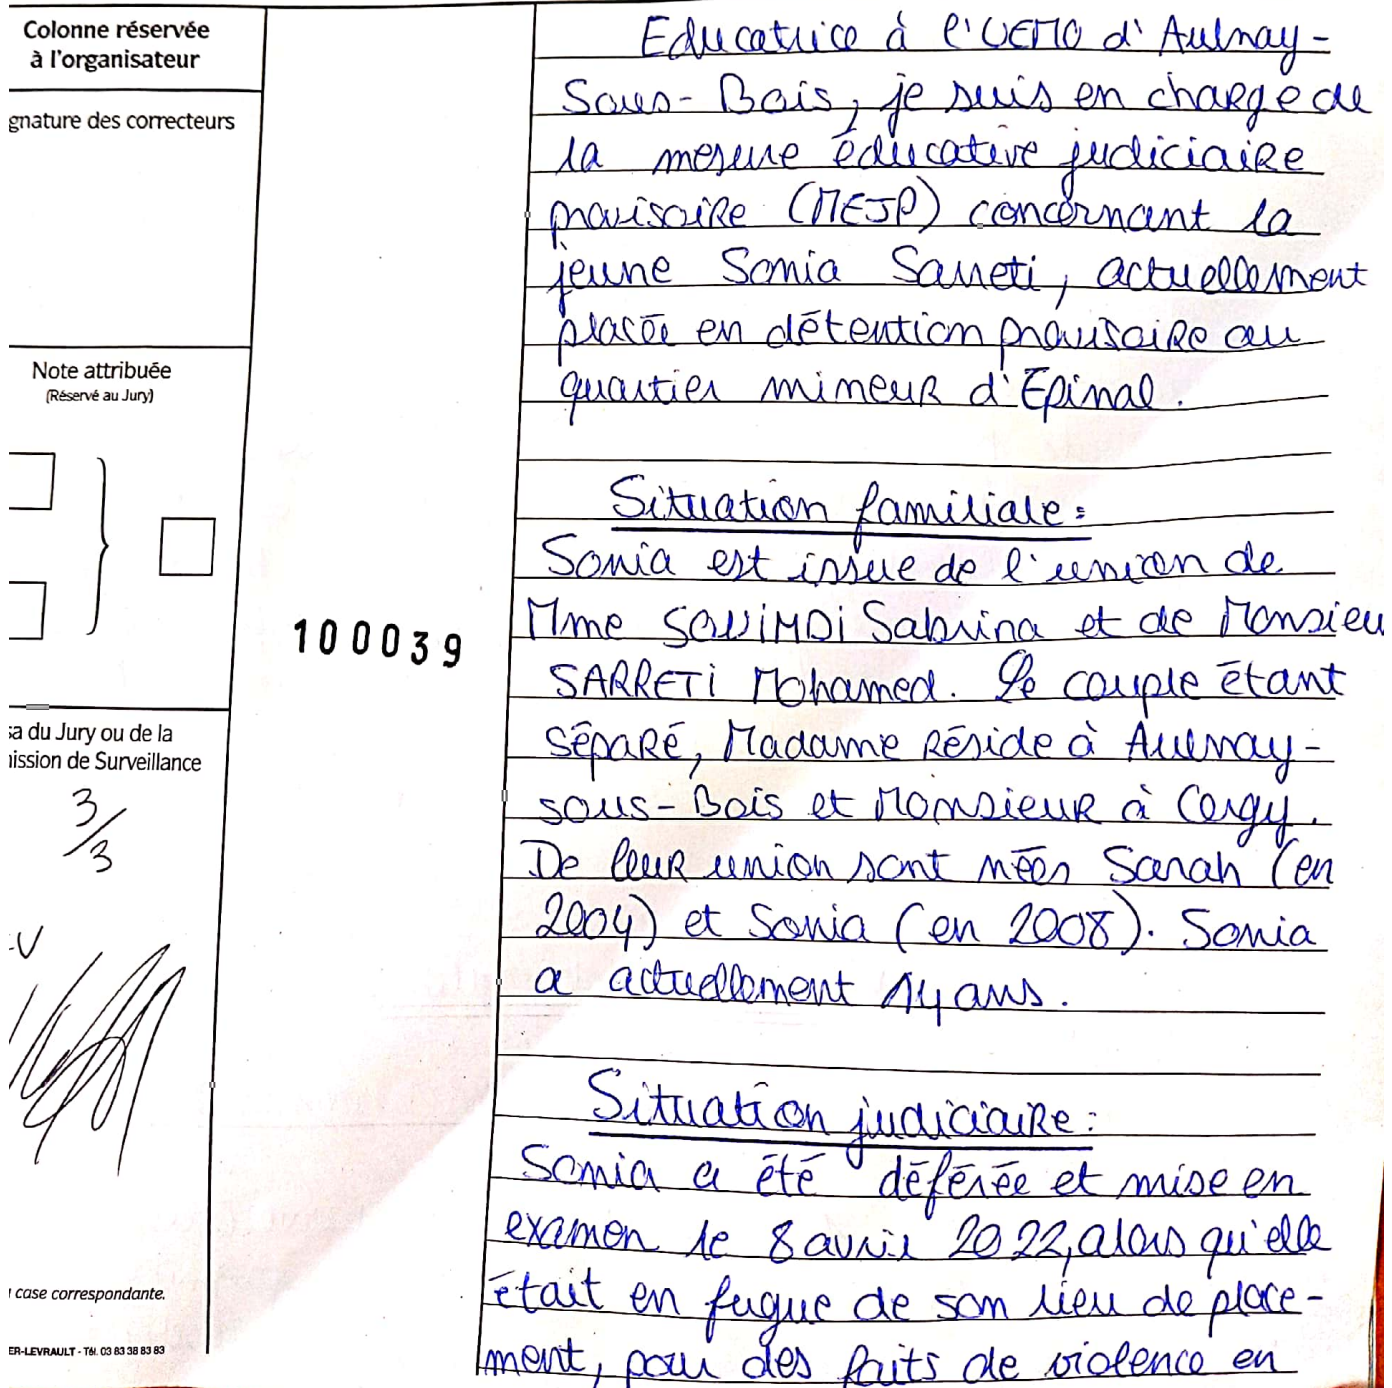 Colonne réservée
à l'organisateur
gnature des correcteurs
Note attribuée
(Réservé au Jury)
sa du Jury ou de la
nission de Surveillance
3/3
case correspondante.
ER-LEVRAULT - Tél. 03 83 38 83 83
100039
Educatrice à l'UEMO d'Aulnay-
Sous-Bois, je suis en charge de
la mesure éducative judiciaire
provisoire (MEJP) concernant la
jeune Sonia Sarreti, actuellement
placée en détention provisoire au
quartier mineur d'Epinal.
Situation familiale :
Sonia est issue de l'union de
Mme Sabrina et de Monsieu
SARRETI Mohamed. Le couple étant
séparé, Madame réside à Aulnay-
sous-Bois et Monsieur à Cergy.
De leur union sont nées Sarah (en
2004) et Sonia (en 2008). Sonia
a actuellement 14 ans.
Situation judiciaire :
Sonia a été déférée et mise en
examen le 8 avril 2022, alors qu'elle
était en fugue de son lieu de place-
ment, pour des faits de violence en